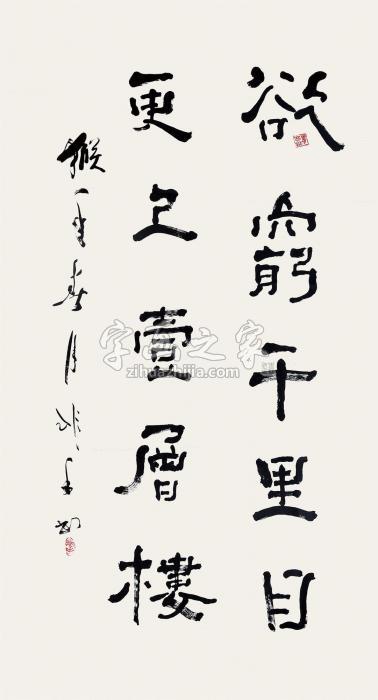 欲窮千里目
更上壹層樓
猴年春月
字画之家
zihuazhijia.com